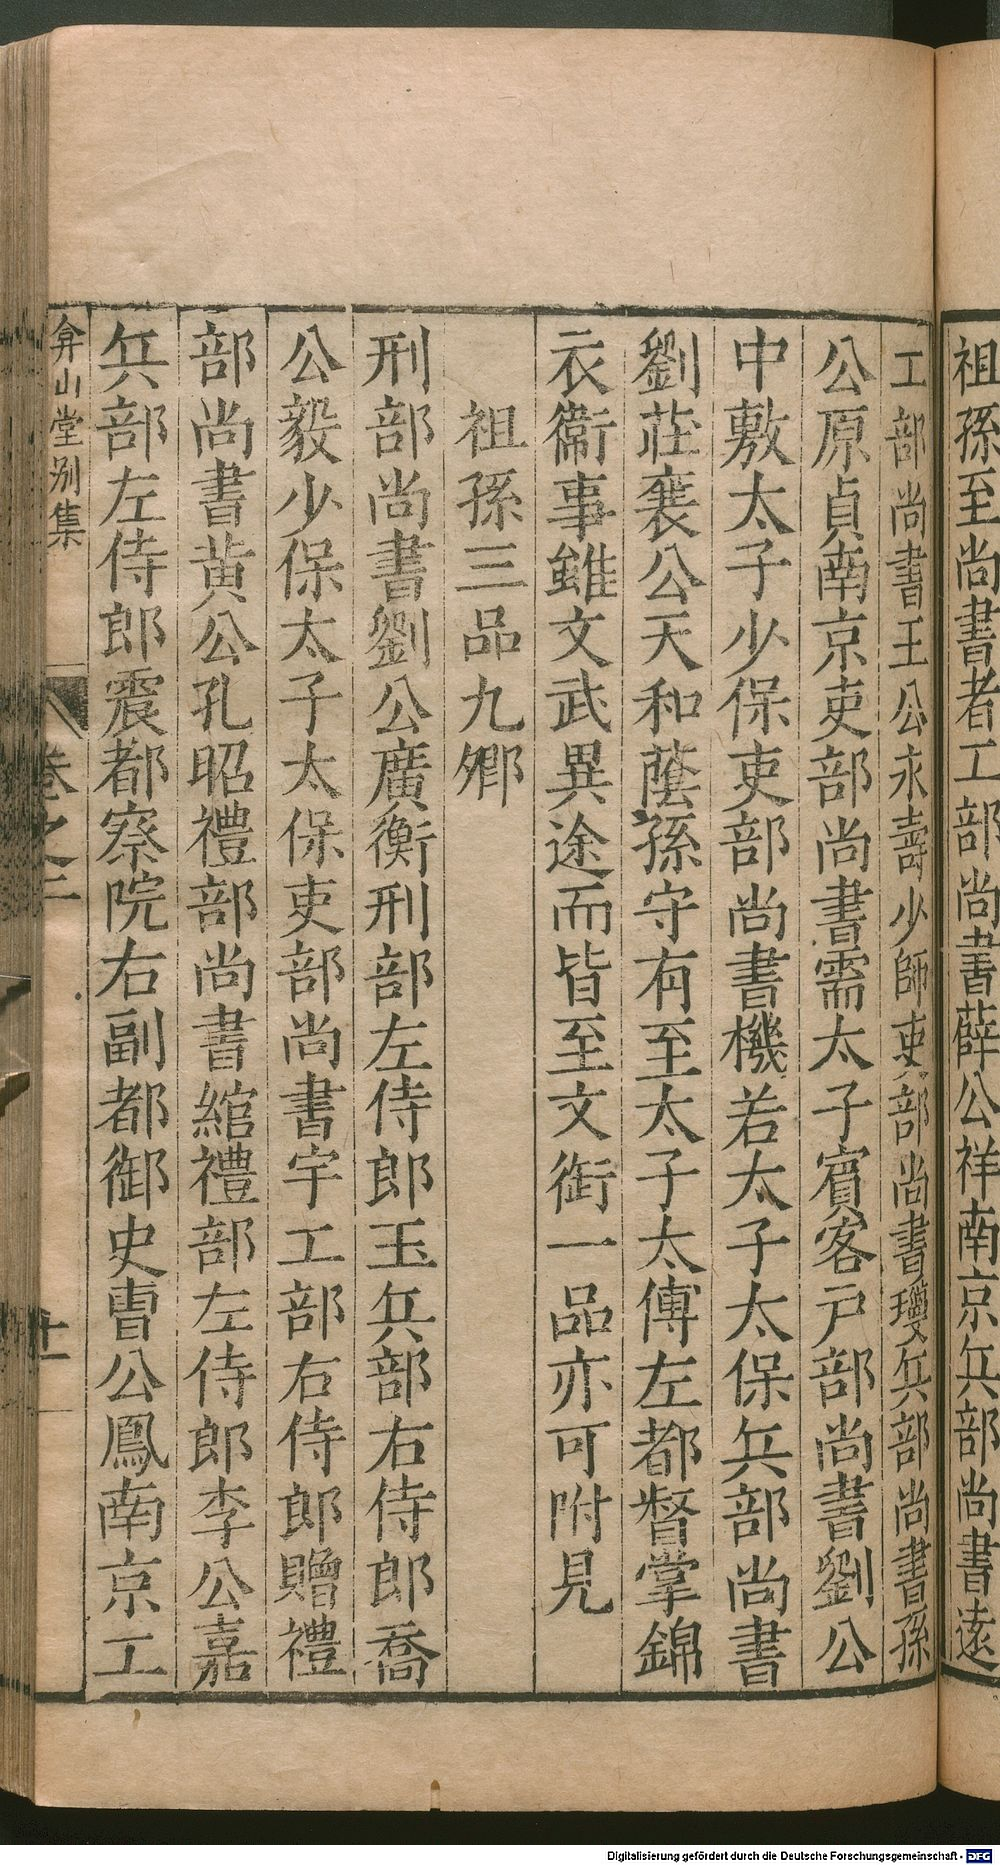 祖孫至尚書者工部尚書薛公祥南京兵部尚書遠
工部尚書王公永壽少師吏部尚書瓊兵部尚書孫
公原貞南京吏部尚書需太子賓客戸部尚書劉公
中敷太子少保吏部尚書機若太子太保兵部尚書
劉莊襄公天和蔭孫守有至太子太傅左都督掌錦
衣衞事雖文武異途而皆至文銜一品亦可附見
祖孫三品九鄉
刑部尚書劉公廣衡刑部左侍郎玉兵部右侍郎喬
公毅少保太子太保吏部尚書宇工部右侍郎贈禮
部尚書黄公孔昭禮部尚書綰禮部左侍郎李公嘉
兵部左侍郎震都察院右副都御史曹公鳳南京工
弇山堂别集
卷之二
十一
Digitalisierung gefördert durch die Deutsche Forschungsgemeinschaft - DFG